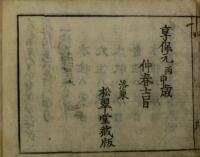 享保元丙申歳
仲春吉日
洛東
松翠堂藏版